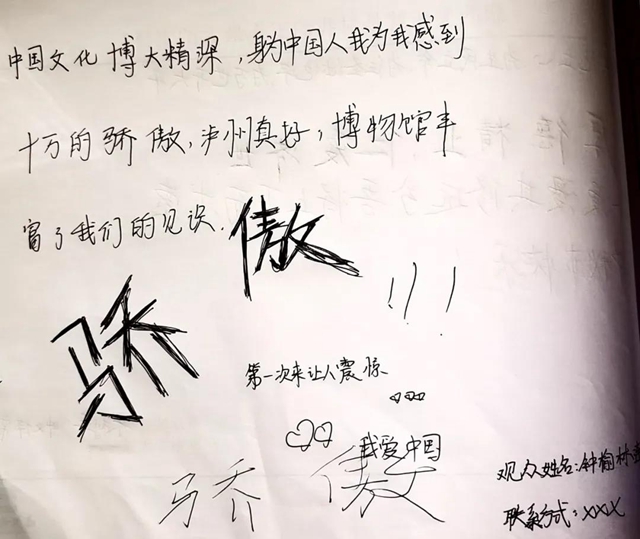 中国文化博大精深,身为中国人我为我感到
十万的骄傲,泸州真好,博物馆丰
富了我们的见识.
骄傲!!!
第一次来让人震惊
我爱中国
骄傲
观众姓名:钟梅林
联系方式:XXX